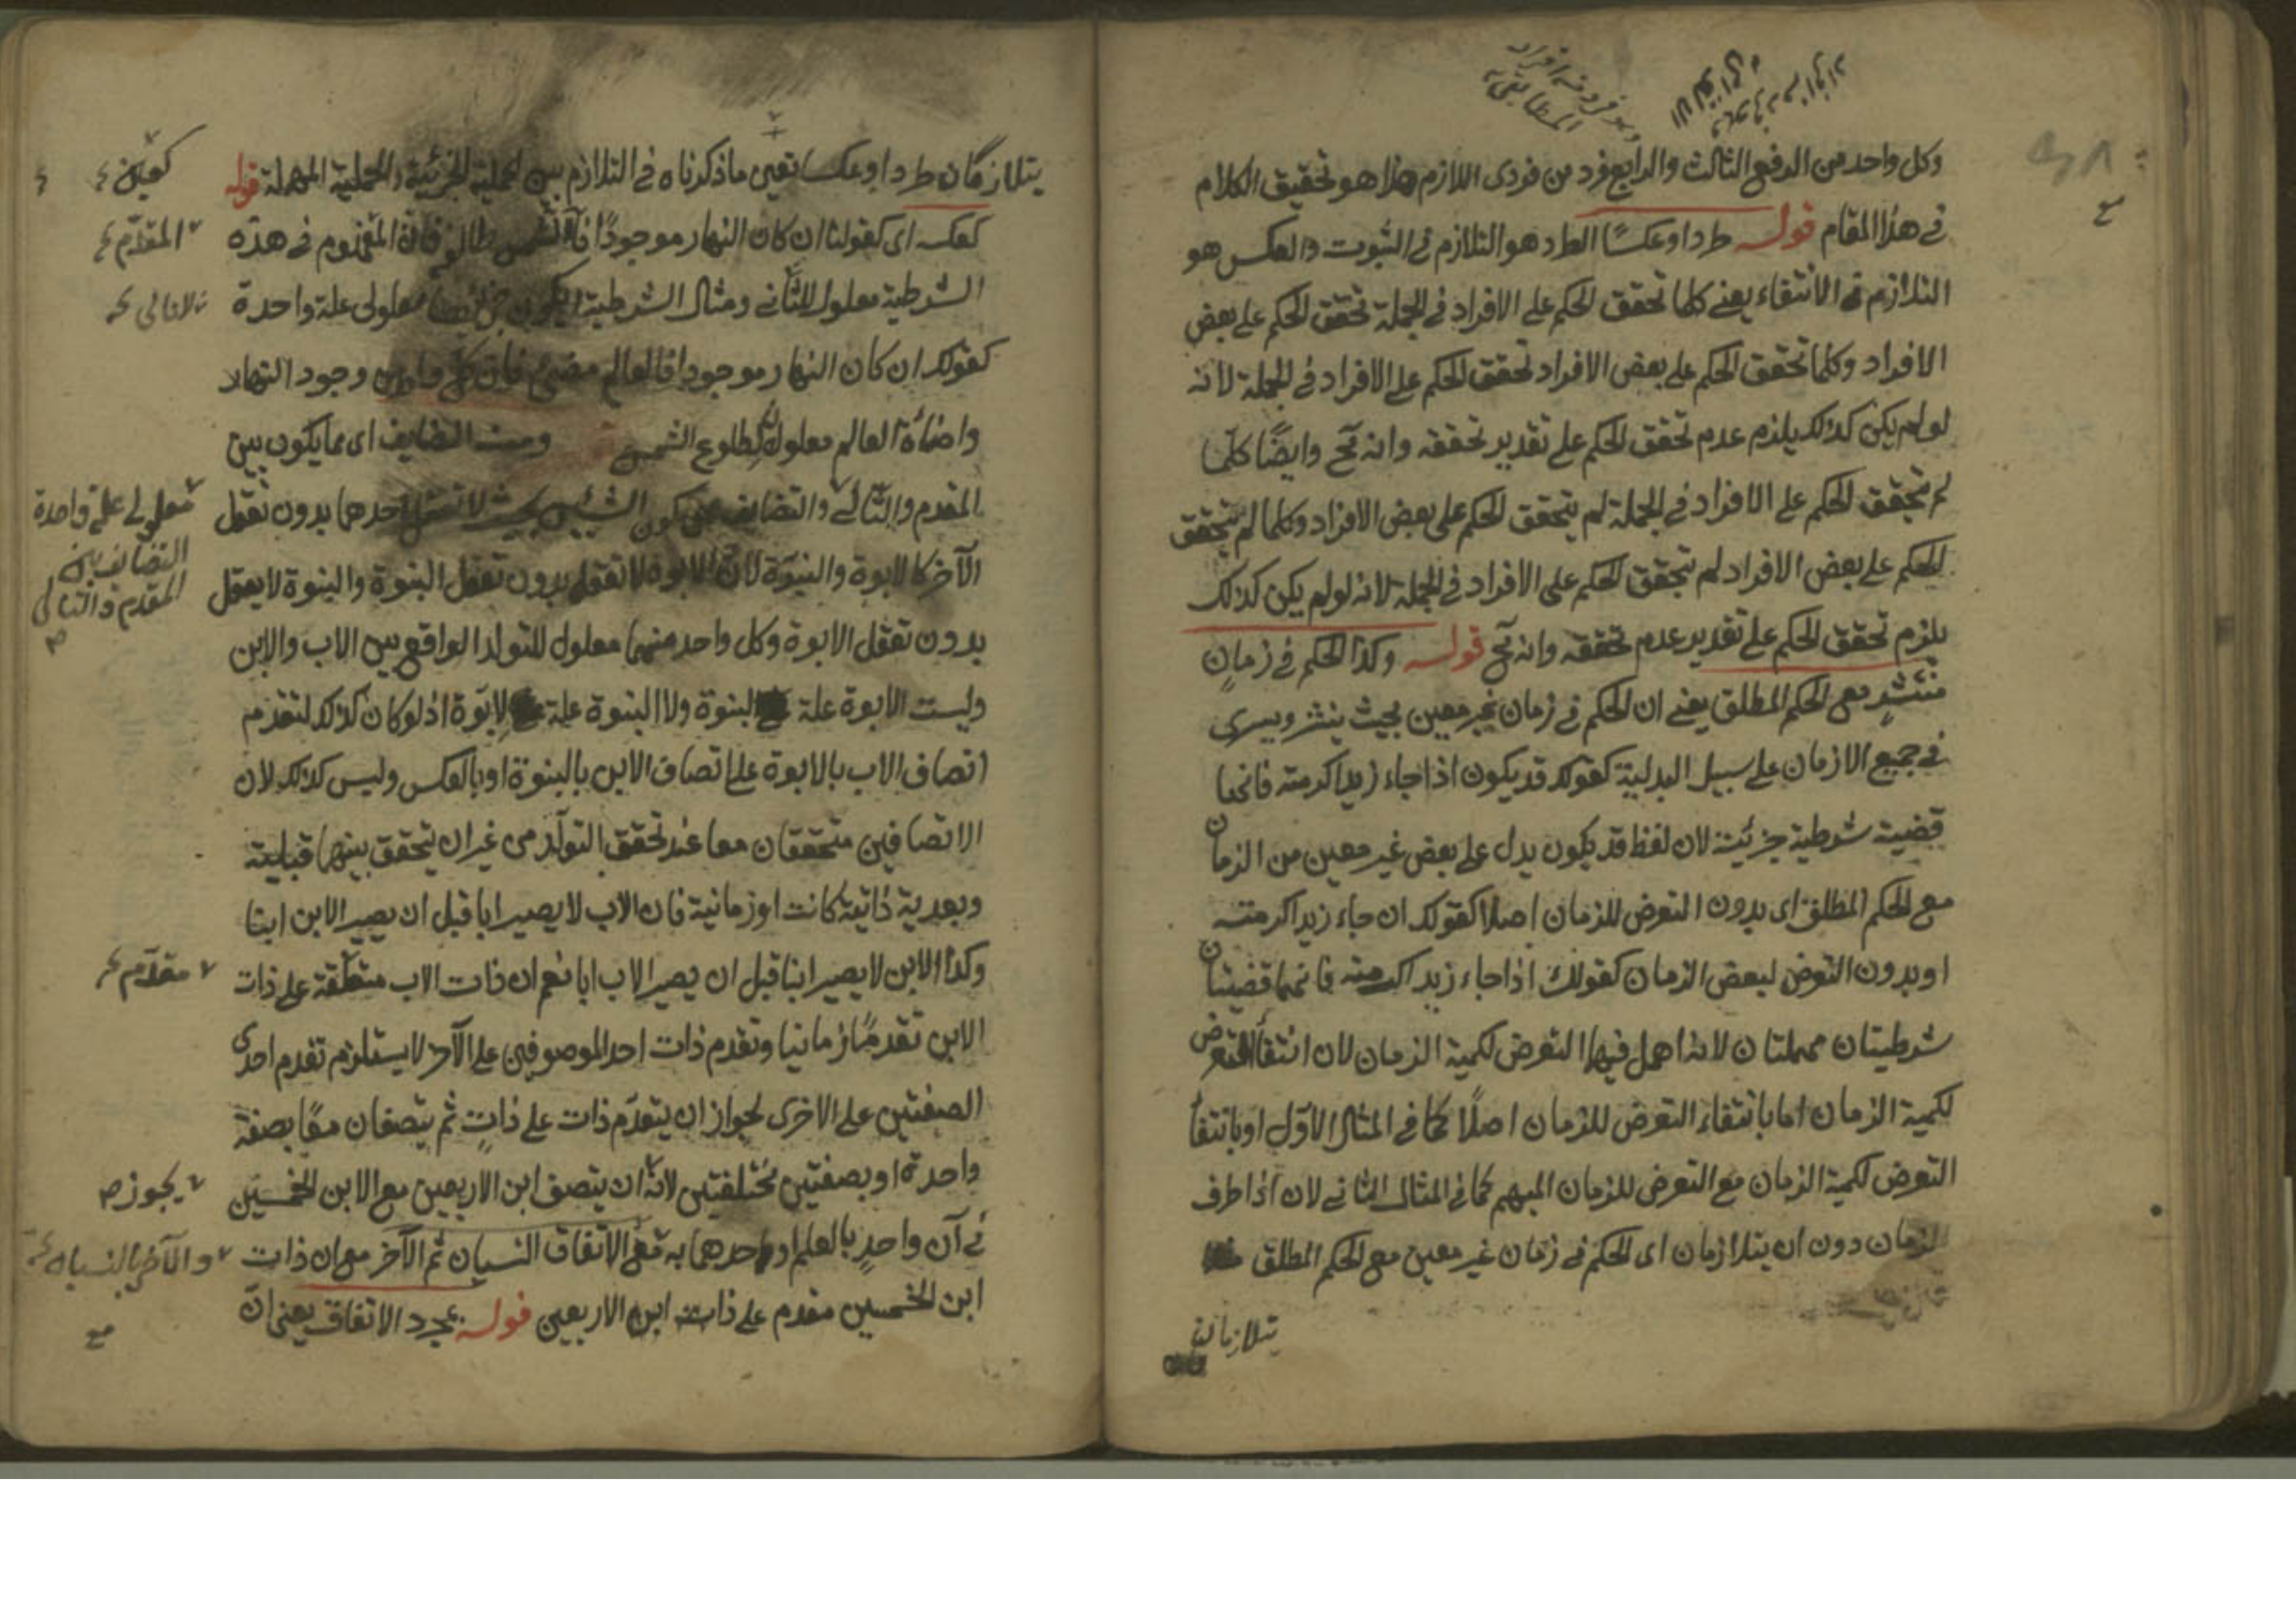 وكل واحد من الدفع الثالث والرابع فرد من فردى اللازم هذا هو تحقيق الكلام
فى هذا المقام قوله طردا وعكسًا الطرد هو التلازم فى الثبوت والعكس هو
التلازم فى الانتفاء يعنى كلما تحقق الحكم على الافراد فى الجملة تحقق الحكم على بعض
الافراد وكلما تحقق الحكم على بعض الافراد تحقق الحكم على الافراد فى الجملة لانه
لو لم يكن كذلك يلزم عدم تحقق الحكم على تقدير تحققه وانه مح وايضًا كلّما
لم يتحقق الحكم على الافراد فى الجملة لم يتحقق الحكم على بعض الافراد وكلما لم يتحقق
الحكم على بعض الافراد لم يتحقق الحكم على الافراد فى الجملة لانه لو لم يكن كذلك
يلزم تحقق الحكم على تقدير عدم تحققه وانه مح قوله وكذا الحكم فى زمانٍ
منتشرٍ مع الحكم المطلق يعنى ان الحكم فى زمان غير معين بحيث ينتشر ويسرى
فى جميع الازمان على سبيل البدلية كقولك قد يكون اذا جاء زيد اكرمته فانها
قضية شرطية جزئية لان لفظ قد يكون يدل على بعض غير معين من الزمان
مع الحكم المطلق اى بدون التعرض للزمان اصلا كقولك ان جاء زيد اكرمته
او بدون التعرض لبعض الزمان كقولك اذا جاء زيد اكرمته فانهما قضيتان
شرطيتان مهملتان لانه اهمل فيهما التعرض لكمية الزمان لان انتفاء التعرض
لكمية الزمان اما بانتفاء التعرض للزمان اصلًا كما فى المثال الاوّل او بانتفاء
التعرض لكمية الزمان مع التعرض للزمان المبهم كما فى المثال الثانى لان اذا ظرف
الزمان دون ان يتلازمان اى الحكم فى زمان غير معين مع الحكم المطلق
يتلازمان
يتلازمان طردا وعكسا تعين ماذكرناه فى التلازم بين الحملية الجزئية والحملية المهملة قوله
كعكسه اى كقولنا ان كان النهار موجودًا فالشمس طالع فان المقدم فى هذه
الشرطية معلول للثانى ومثال الشرطية معلولى علة واحدة
كقولك ان كان النهار موجودا فالعالم مضئ فان كل واحد من وجود النهار
واضاءة العالم معلول لطلوع الشمس ومنه التضايف اى مما يكون بين
المقدم والتالى والتضايف كون الشيئين بحيث لا تعقل احدهما بدون تعقل
الآخر كالابوة والبنوّة لان الابوة لا تعقل بدون تعقل البنوة والبنوة لا يعقل
بدون تعقل الابوة وكل واحد منهما معلول للتولد الواقع بين الاب والابن
وليست الابوة علة لبنوة ولا البنوة علة لابوّة اذ لو كان كذلك لتقدم
اتصاف الاب بالابوة على اتصاف الابن بالبنوة او بالعكس وليس كذلك لان
الاتصافين متحققان معا عند تحقق التولّد من غير ان يتحقق بينهما قبلية
وبعدية ذاتية كانت او زمانية فان الاب لا يصير ابا قبل ان يصير الابن ابنا
وكذا الابن لا يصير ابنا قبل ان يصير الاب ابا نعم ان ذات الاب متعلقة على ذات
الابن تقدمًا زمانيا وتقدم ذات احد الموصوفين على الآخر لا يستلزم تقدم احدى
الصفتين على الاخرى لجواز ان يتقدّم ذات على ذاتٍ ثم يتصفان معًا بصفة
واحدة او بصفتين مختلفتين لانّه ان يتصف ابن الاربعين مع الابن الخمسين
فى آن واحدٍ بالعلم او احدهما به مع الاتفاق النسيان ثم الآخر مع ان ذات
ابن الخمسين مقدم على ذات ابن الاربعين قوله بمجرد الاتفاق يعنى انّ
المقدّم
معلولى علة واحدة
التضايف بين
المقدم والتالى
مقدّم
يجوز
والآخر بالنسيان